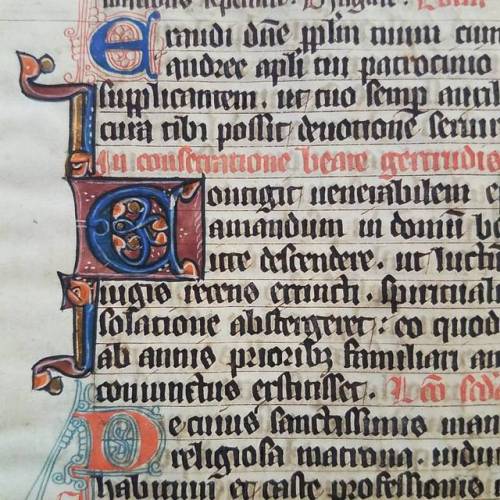 Eraudi dn̄e ꝑplm̄ tuum cum
andree apl̓i tui patrocinio
supplicantem. ut tuo semꝑ auxil
cura tibi possit deuotionē seruir
In consecratione beate gertrudis
Contigit uenerabilem
amandum in domū be
itte descendere. ut luctū
iugis recens extincti. spiritual
solacione abstergeret: eo quod
ab annis prioribꝫ familiari am
coniunctus extitisset. Lc̄o sed
De cuius sanctissimis man
religiosa matrona. indui
habitum et caste professionis